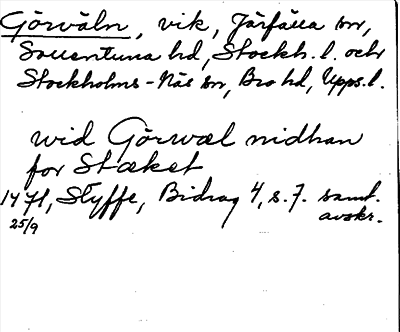 Görväln, vik, Järfälla sn,
Sollentuna hd, Stockh. l. och
Stockholms-Näs sn, Bro hd, Upps. l.
wid Görwæl nidhan
for Stæket
1471, Styffe, Bidrag 4, s. 7. samt.
25/9 avskr.